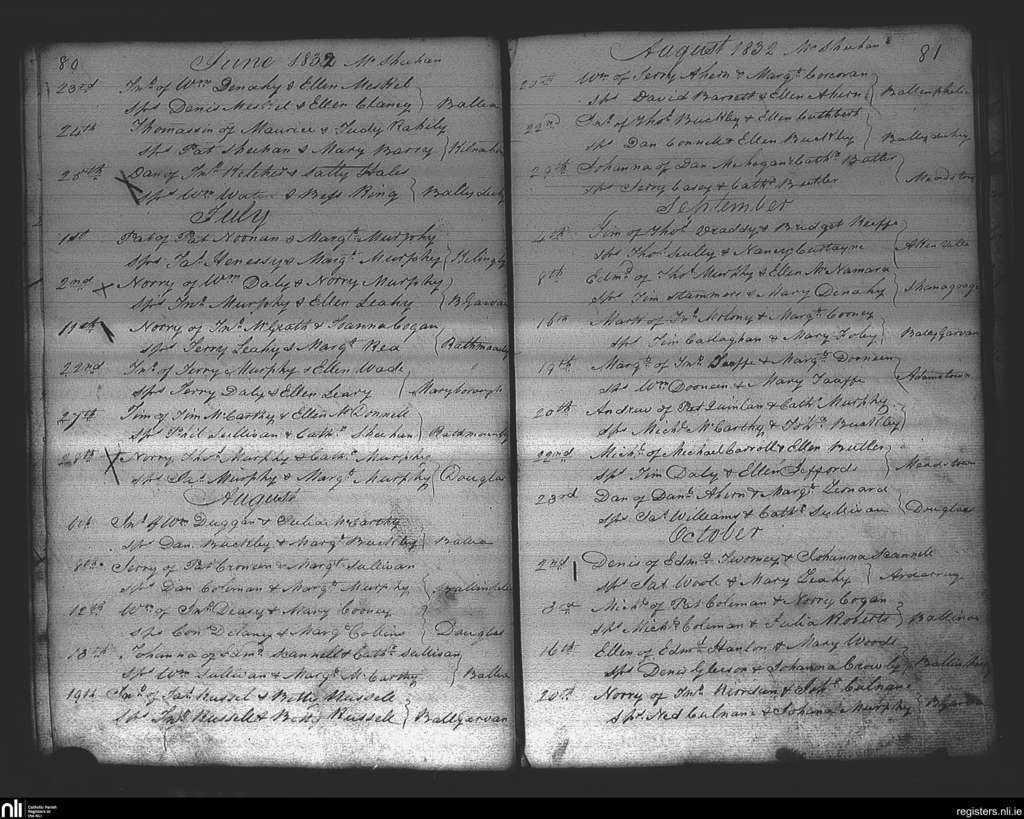 80 June 1832 Mr Sheehan
23rd Jno. of Wm Denahy & Ellen Meskel
Sps Denis Meskel & Ellen Clancy } Ballea
24th Thomassin of Maurice & Judy Rahily
Sps Pat Sheehan & Mary Barry }
25th Dan of Jno. Kelcher & Satty Hales
Sps Wm Water & Bess Ring }
July
1st Pat of Pat Noonan & Margt. Murphy
Sps Jas. Henessy & Margt. Murphy }
2nd Norry of Wm Daly & Norry Murphy
Sps Jno. Murphy & Ellen Leahy } BGarvan
11th Norry of Jno. McGrath & Joanna Cogan
Sps Jerry Leahy & Margt. Rea }
22nd Jno. of Jerry Murphy & Ellen Wade
Sps Jerry Daly & Ellen Leary } Maryborough
27th Tim of Tim McCarthy & Ellen McDonnell
Sps Phil Sullivan & Cath. Sheehan }
28th Norry Thos. Murphy & Cath. Murphy
Sps Jas. Murphy & Margt. Murphy } Douglas
August
6th Jno. of Wm Duggan & Julia McCarthy
Sps Dan. Buckley & Margt. Buckley } Ballea
8th Jerry of Pat Cronin & Margt. Sullivan
Sps Dan Coleman & Margt. Murphy }
12th Wm of Jno. Deasy & Mary Cooney
Sps Con Delaney & Margt. Collins } Douglas
13th Johanna of Edmd. Scannell & Cath. Sullivan
Sps Wm Sullivan & Margt. McCarthy } Ballea
19th Jno. of Jas. Russel & Betty Russell
Sps Jno. Russell & Betty Russell } BallyGarvan
August 1832 Mr Sheehan 81
Wm. of Jerry Ahern & Margt. Corcoran
Sps David Barrett & Ellen Ahern }
22nd Jno. of Thos. Buckley & Ellen Cuthbert
Sps Dan Connell & Ellen Buckley }
29th Johanna of Dan Mehegan & Cath. Butler
Sps Jerry Casey & Cath. Butler } Meadstown
September
4th Tim of Thos. Draddy & Bridget Keeffe
Sps Thos. Scully & Nancy }
8th Edmd. of Thos. Murphy & Ellen McNamara
Sps Tim Stammers & Mary Denahy }
16th Mark of Jno. Molony & Margt. Cooney
Sps Tim Callaghan & Mary Foley } BallyGarvan
19th Margt. of Jno. Taaffe & Margt. Dorneen
Sps Wm Dooneen & Mary Taaffe } Adamstown
20th Andrew of Pat Quinlan & Cath. Murphy
Sps Michl. McCarthy & Joh. Buckley }
22nd Michl. of Michael Carroll & Ellen Butler
Sps Tim Daly & Ellen Jeffords } Meadstown
23rd Dan of Danl. Ahern & Margt. Leonard
Sps Jas. Williams & Cath. Sullivan } Douglas
October
2nd Denis of Edmd. Twomey & Johanna Scannell
Sps Pat Woods & Mary Leahy } Ardarrig
3rd Michl. of Pat Coleman & Norry Cogan
Sps Michl. Coleman & Julia Roberts }
16th Ellen of Edmd. Hanlon & Mary Woods
Sps Denis Gleeson & Johanna Crowly }
20th Norry of Jno. Riordan & Joh. Culnane
Sps Ned Culnane & Johana Murphy } BGarvan
nli Catholic Parish Registers at the NLI
registers.nli.ie